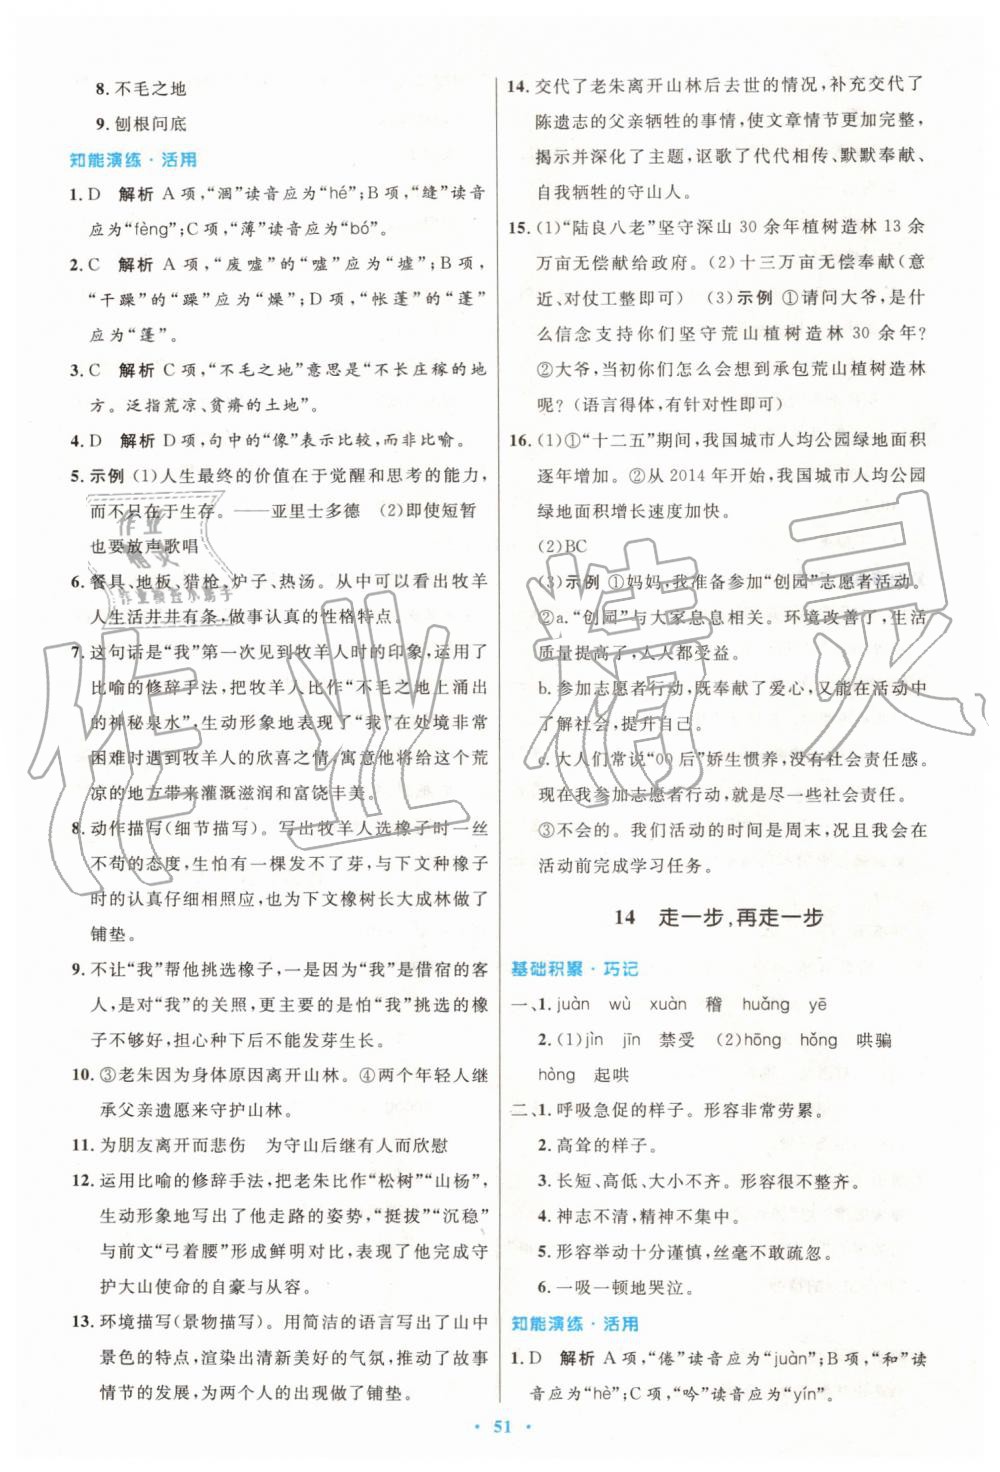 8. 不毛之地
9. 刨根问底
知能演练·活用
1. D　解析 A 项,“涸”读音应为“hé”;B 项,“缝”读音
应为“fèng”;C 项,“薄”读音应为“bó”。
2. C　解析 A 项,“废嘘”的“嘘”应为“墟”;B 项,
“干躁”的“躁”应为“燥”;D 项,“帐蓬”的“蓬”
应为“篷”。
3. C　解析 C 项,“不毛之地”意思是“不长庄稼的地
方。泛指荒凉、贫瘠的土地”。
4. D　解析 D 项,句中的“像”表示比较,而非比喻。
5. 示例 (1)人生最终的价值在于觉醒和思考的能力,
而不只在于生存。——亚里士多德　(2)即使短暂
也要放声歌唱
6. 餐具、地板、猎枪、炉子、热汤。从中可以看出牧羊
人生活井井有条,做事认真的性格特点。
7. 这句话是“我”第一次见到牧羊人时的印象,运用了
比喻的修辞手法,把牧羊人比作“不毛之地上涌出
的神秘泉水”,生动形象地表现了“我”在处境非常
困难时遇到牧羊人的欣喜之情,寓意他将给这个荒
凉的地方带来灌溉滋润和富饶丰美。
8. 动作描写(细节描写)。写出牧羊人选橡子时一丝
不苟的态度,生怕有一棵发不了芽,与下文种橡子
时的认真仔细相照应,也为下文橡树长大成林做了
铺垫。
9. 不让“我”帮他挑选橡子,一是因为“我”是借宿的客
人,是对“我”的关照,更主要的是怕“我”挑选的橡
子不够好,担心种下后不能发芽生长。
10. ③老朱因为身体原因离开山林。④两个年轻人继
承父亲遗愿来守护山林。
11. 为朋友离开而悲伤　为守山后继有人而欣慰
12. 运用比喻的修辞手法,把老朱比作“松树”“山杨”,
生动形象地写出了他走路的姿势,“挺拔”“沉稳”
与前文“弓着腰”形成鲜明对比,表现了他完成守
护大山使命的自豪与从容。
13. 环境描写(景物描写)。用简洁的语言写出了山中
景色的特点,渲染出清新美好的气氛,推动了故事
情节的发展,为两个人的出现做了铺垫。
14. 交代了老朱离开山林后去世的情况,补充交代了
陈遗志的父亲牺牲的事情,使文章情节更加完整,
揭示并深化了主题,讴歌了代代相传、默默奉献、
自我牺牲的守山人。
15. (1)“陆良八老”坚守深山 30 余年植树造林 13 余
万亩无偿献给政府。(2)十三万亩无偿奉献(意
近、对仗工整即可)　(3)示例 ①请问大爷,是什
么信念支持你们坚守荒山植树造林 30 余年?
②大爷,当初你们怎么会想到承包荒山植树造林
呢?(语言得体,有针对性即可)
16. (1)①“十二五”期间,我国城市人均公园绿地面积
逐年增加。②从 2014 年开始,我国城市人均公园
绿地面积增长速度加快。
(2)BC
(3)示例 ①妈妈,我准备参加“创园”志愿者活动。
②a.“创园”与大家息息相关。环境改善了,生活
质量提高了,人人都受益。
b. 参加志愿者行动,既奉献了爱心,又能在活动中
了解社会,提升自己。
c. 大人们常说“00 后”娇生惯养,没有社会责任感。
现在我参加志愿者行动,就是尽一些社会责任。
③不会的。我们活动的时间是周末,况且我会在
活动前完成学习任务。
14　走一步,再走一步
基础积累·巧记
一、1. juàn　wù　xuàn　稽　huǎng　yē
2. (1)jìn　jīn　禁受　(2)hōng　hǒng　哄骗
hòng　起哄
二、1. 呼吸急促的样子。形容非常劳累。
2. 高耸的样子。
3. 长短、高低、大小不齐。形容很不整齐。
4. 神志不清,精神不集中。
5. 形容举动十分谨慎,丝毫不敢疏忽。
6. 一吸一顿地哭泣。
知能演练·活用
1. D　解析 A 项,“倦”读音应为“juàn”;B 项,“和”读
音应为“hè”;C 项,“吟”读音应为“yín”。
· 51 ·
作业精灵
作业
精灵